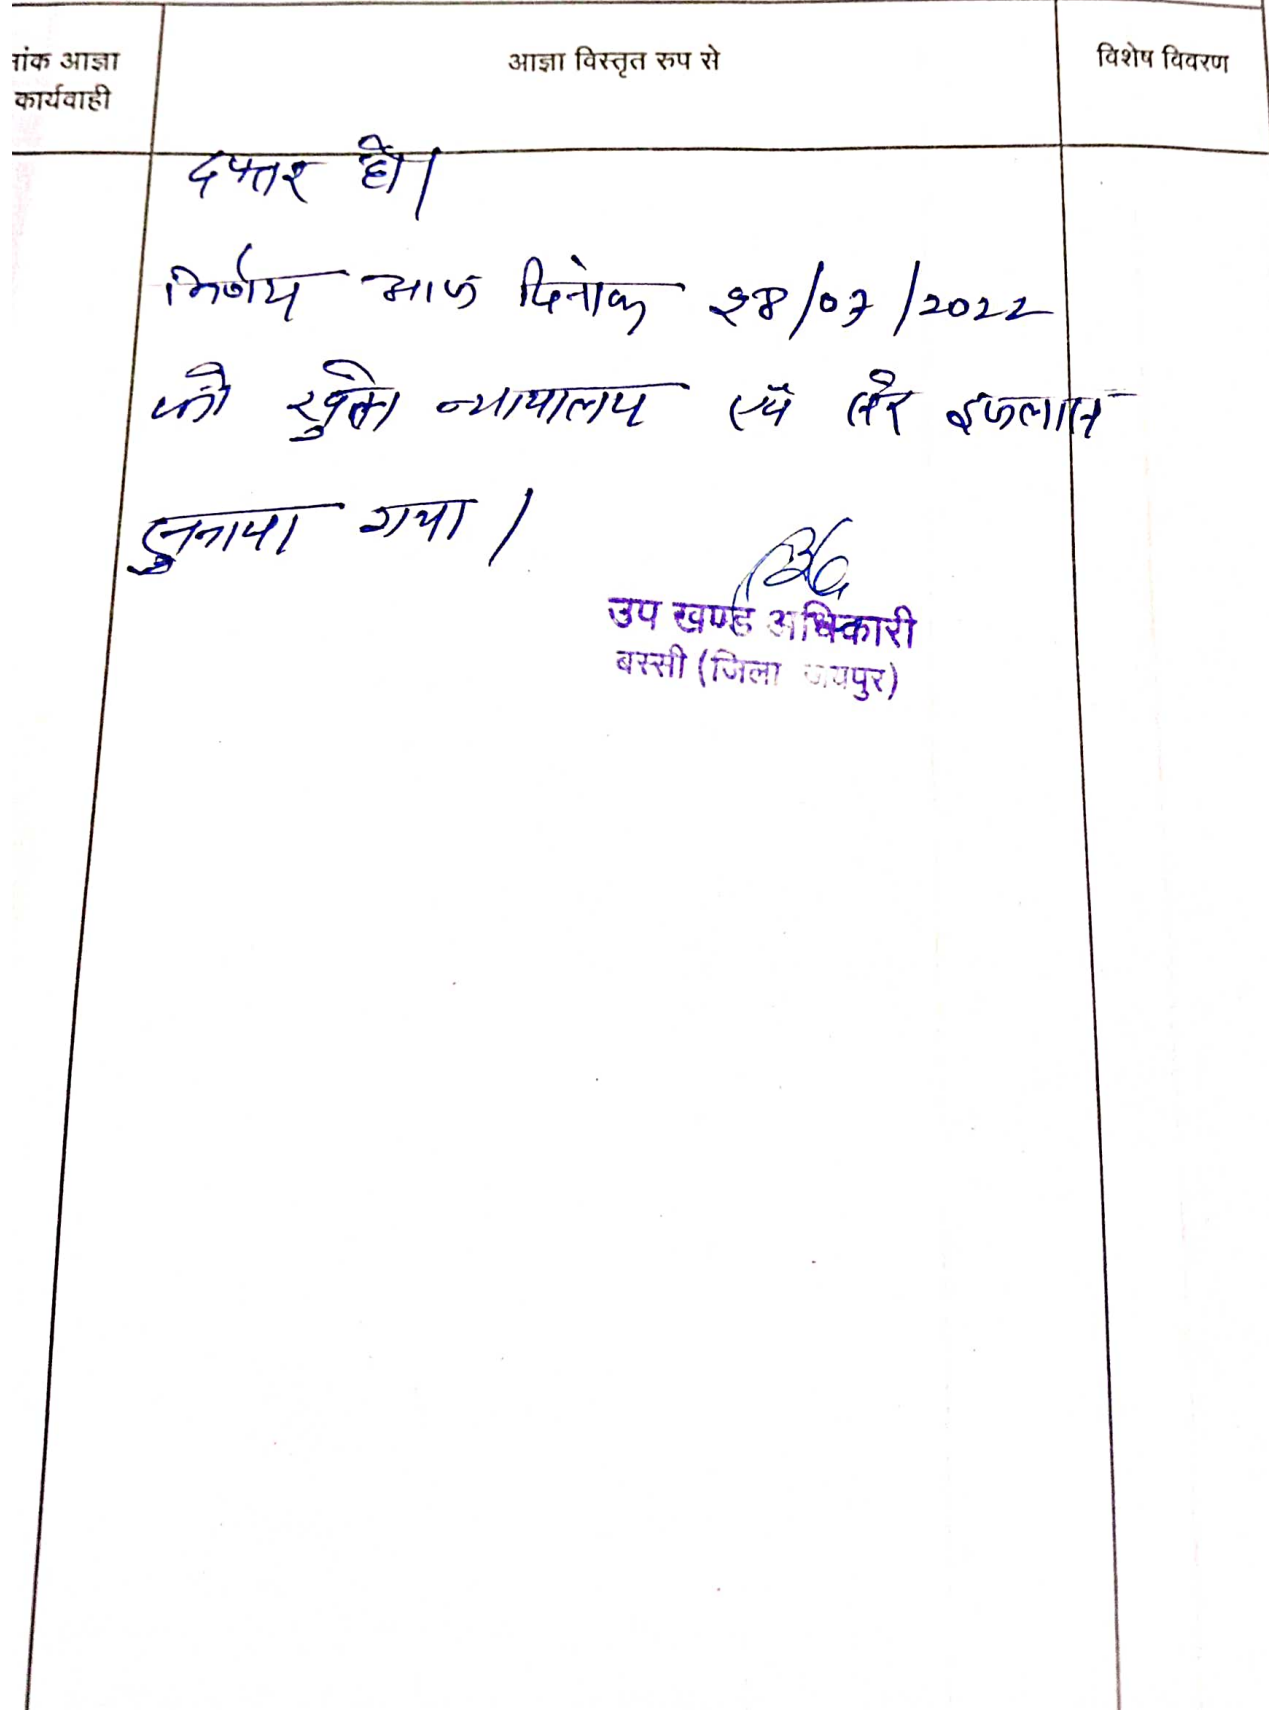 नांक आज्ञा
कार्यवाही
आज्ञा विस्तृत रुप से
विशेष विवरण
दफ्तर हो।
निर्णय आज दिनांक 28/07/2022
को खुले न्यायालय एवं सरे इजलास
सुनाया गया।
उप खण्ड अधिकारी
बस्सी (जिला जयपुर)